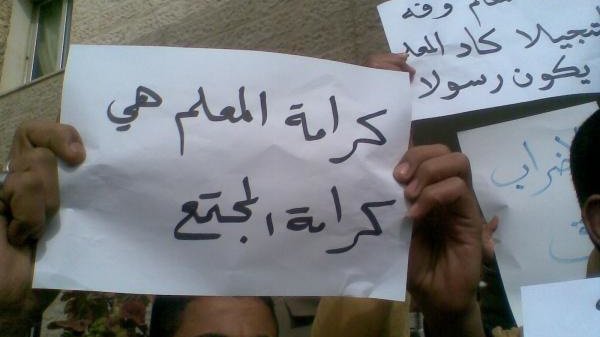 كرامة المعلم هي
كرامة المجتمع
وفه
لتبجيلا كاد المعلم
يكون رسولا
ضراب